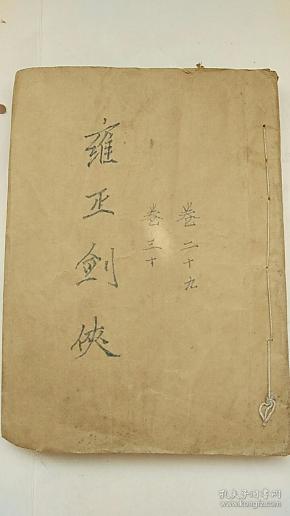 雍正剑侠
卷二十九
卷三十
孔夫子旧书网